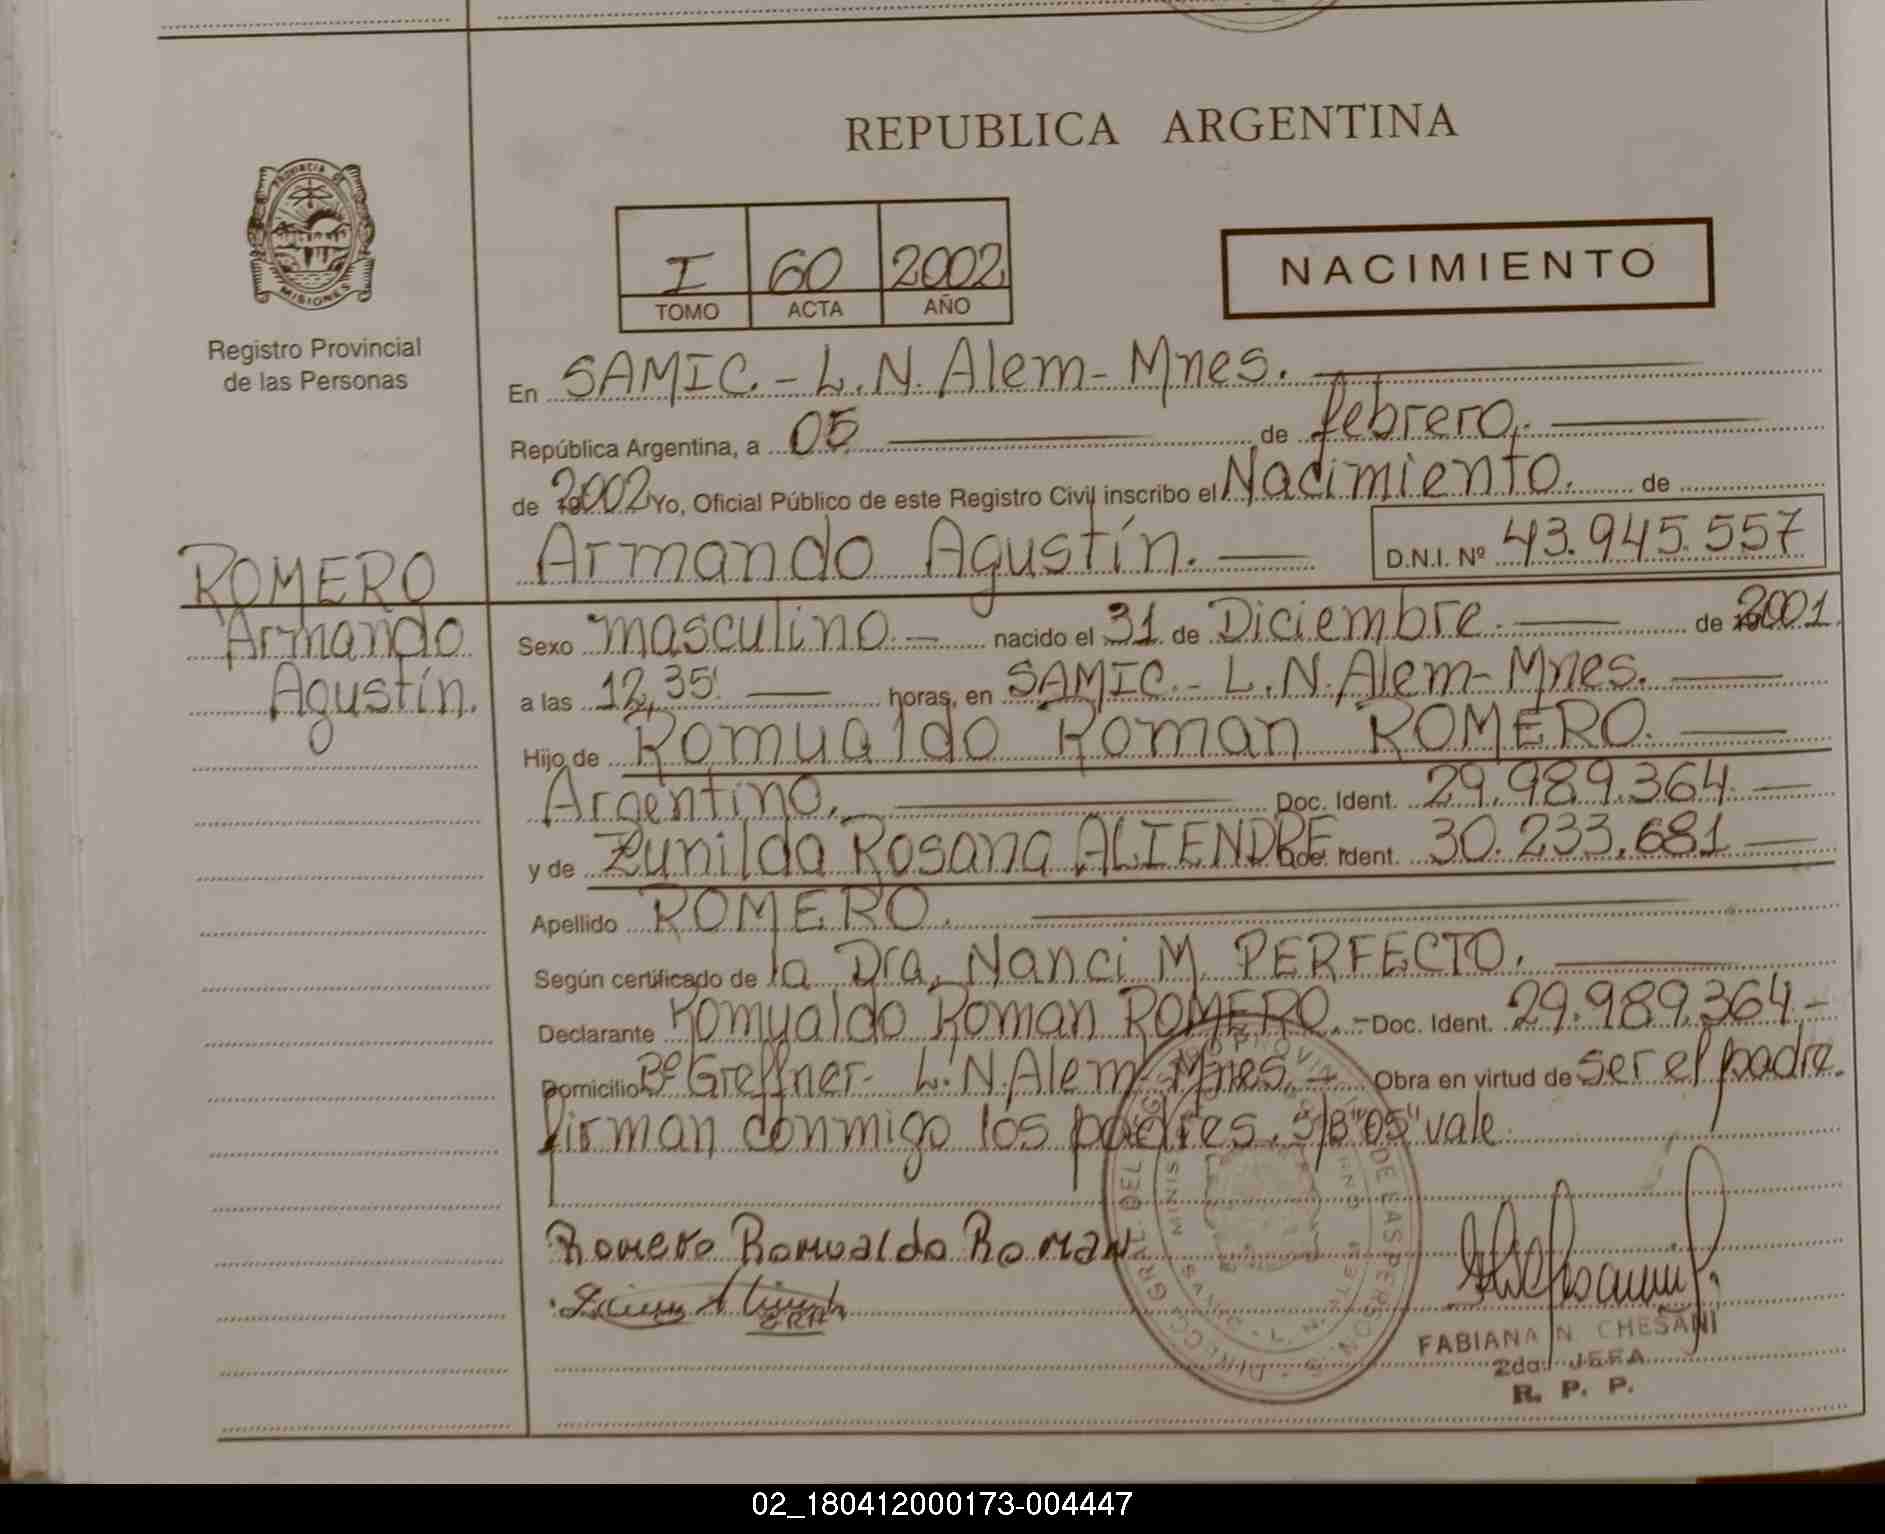 REPUBLICA ARGENTINA
PROVINCIA DE
MISIONES
Registro Provincial
de las Personas
I 60 2002
TOMO ACTA AÑO
NACIMIENTO
En SAMIC.-L.N.Alem-Mnes.
República Argentina, a 05 de febrero.
de 2002 Yo, Oficial Público de este Registro Civil inscribo el Nacimiento. de
Armando Agustín. D.N.I. Nº 43.945.557
ROMERO
Armando
Agustín.
Sexo masculino.- nacido el 31 de Diciembre. de 2001
a las 12,35' horas, en SAMIC.-L.N.Alem-Mnes.
Hijo de Romualdo Roman ROMERO.
Argentino. Doc. Ident. 29.989.364.
y de Zunilda Rosana ALIENDRE Doc. Ident. 30.233.681
Apellido ROMERO.
Según certificado de la Dra. Nanci M. PERFECTO.
Declarante Romualdo Roman ROMERO.- Doc. Ident. 29.989.364.-
Domicilio Bº Greffner- L.N.Alem-Mnes.- Obra en virtud de ser el padre.
firman conmigo los padres. S/B "05" vale
Romero Romualdo Roman
FABIANA N CHESANI
2da. JEFA
R. P. P.
02_180412000173-004447